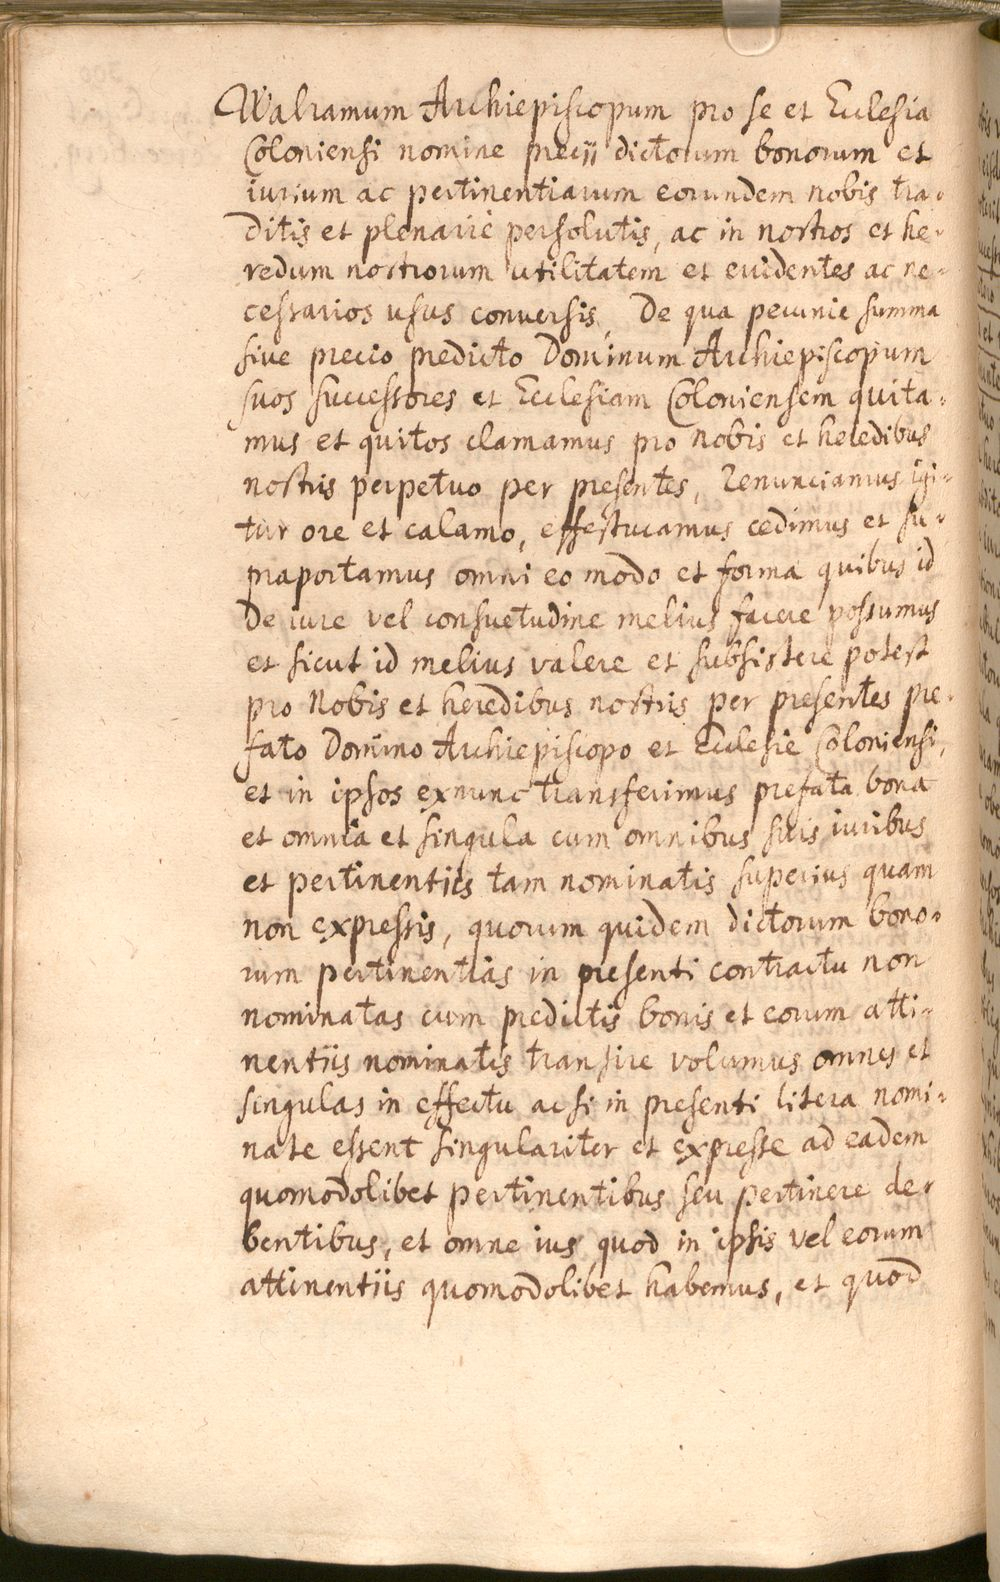 Walramum Archiepiscopum pro se et Ecclesia
Coloniensi nomine precij dictorum bonorum et
iurium ac pertinentiarum eorundem nobis tra-
ditis et plenarie persolutis, ac in nostros et he-
redum nostrorum utilitatem et evidentes ac ne-
cessarios usus conversis, De qua pecunie summa
sive precio predicto Dominum Archiepiscopum
suos successores et Ecclesiam Coloniensem quita-
mus et quitos clamamus pro nobis et heredibus
nostris perpetuo per presentes, Renunciamus igi-
tur ore et calamo, effestucamus cedimus et su-
praportamus omni eo modo et forma quibus id
De iure vel consuetudine melius facere possumus
et sicut id melius valere et subsistere potest
pro Nobis et heredibus nostris per presentes pre-
fato Domino Archiepiscopo et Ecclesie Coloniensi,
et in ipsos exnunc transferimus prefata bona
et omnia et singula cum omnibus suis iuribus
et pertinentiis tam nominatis superius quam
non expressis, quorum quidem dictorum bono-
rum pertinentias in presenti contractu non
nominatas cum predictis bonis et eorum atti-
nentiis nominatis transire volumus omnes et
singulas in effectu ac si in presenti litera nomi-
nate essent singulariter et expresse ad eadem
quomodolibet pertinentibus seu pertinere de-
bentibus, et omne ius quod in ipsis vel eorum
attinentiis quomodolibet habemus, et quod